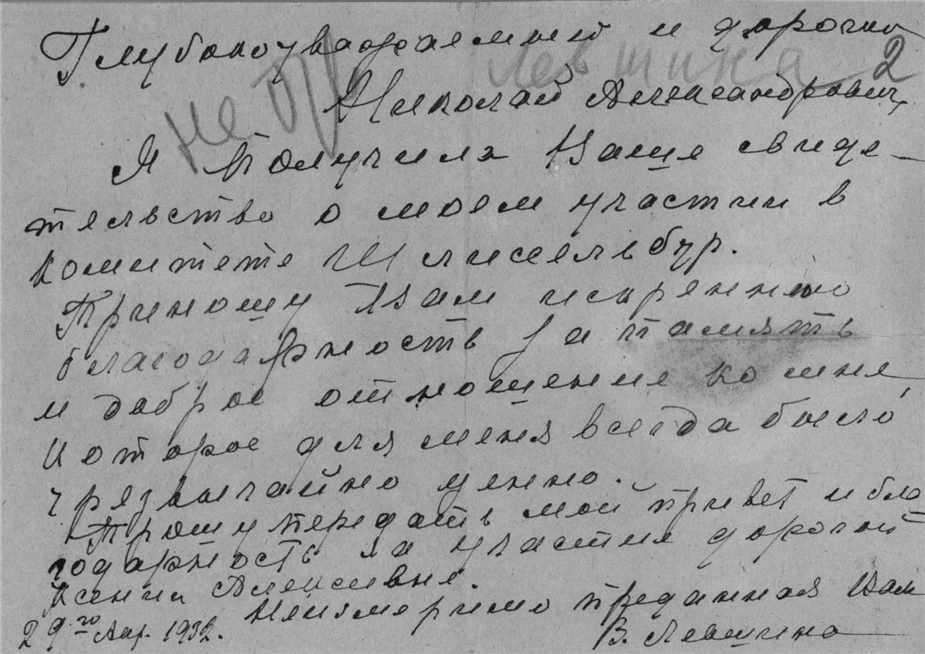 Глубокоуважаемый и дорогой
Левшина 2
не БР
Николай Александрович,
Я получила Ваше свиде-
тельство о моем участии в
комитете Шлиссельбур.
Приношу Вам искреннюю
благодарность за память
и доброе отношение ко мне,
которое для меня всегда было
чрезвычайно ценно.
Прошу передать мой привет и бла
годарность за участие дорогой
Ксении Алексеивне.
Неизмеримо преданная Вам
29го Апр. 1932. В. Левшина